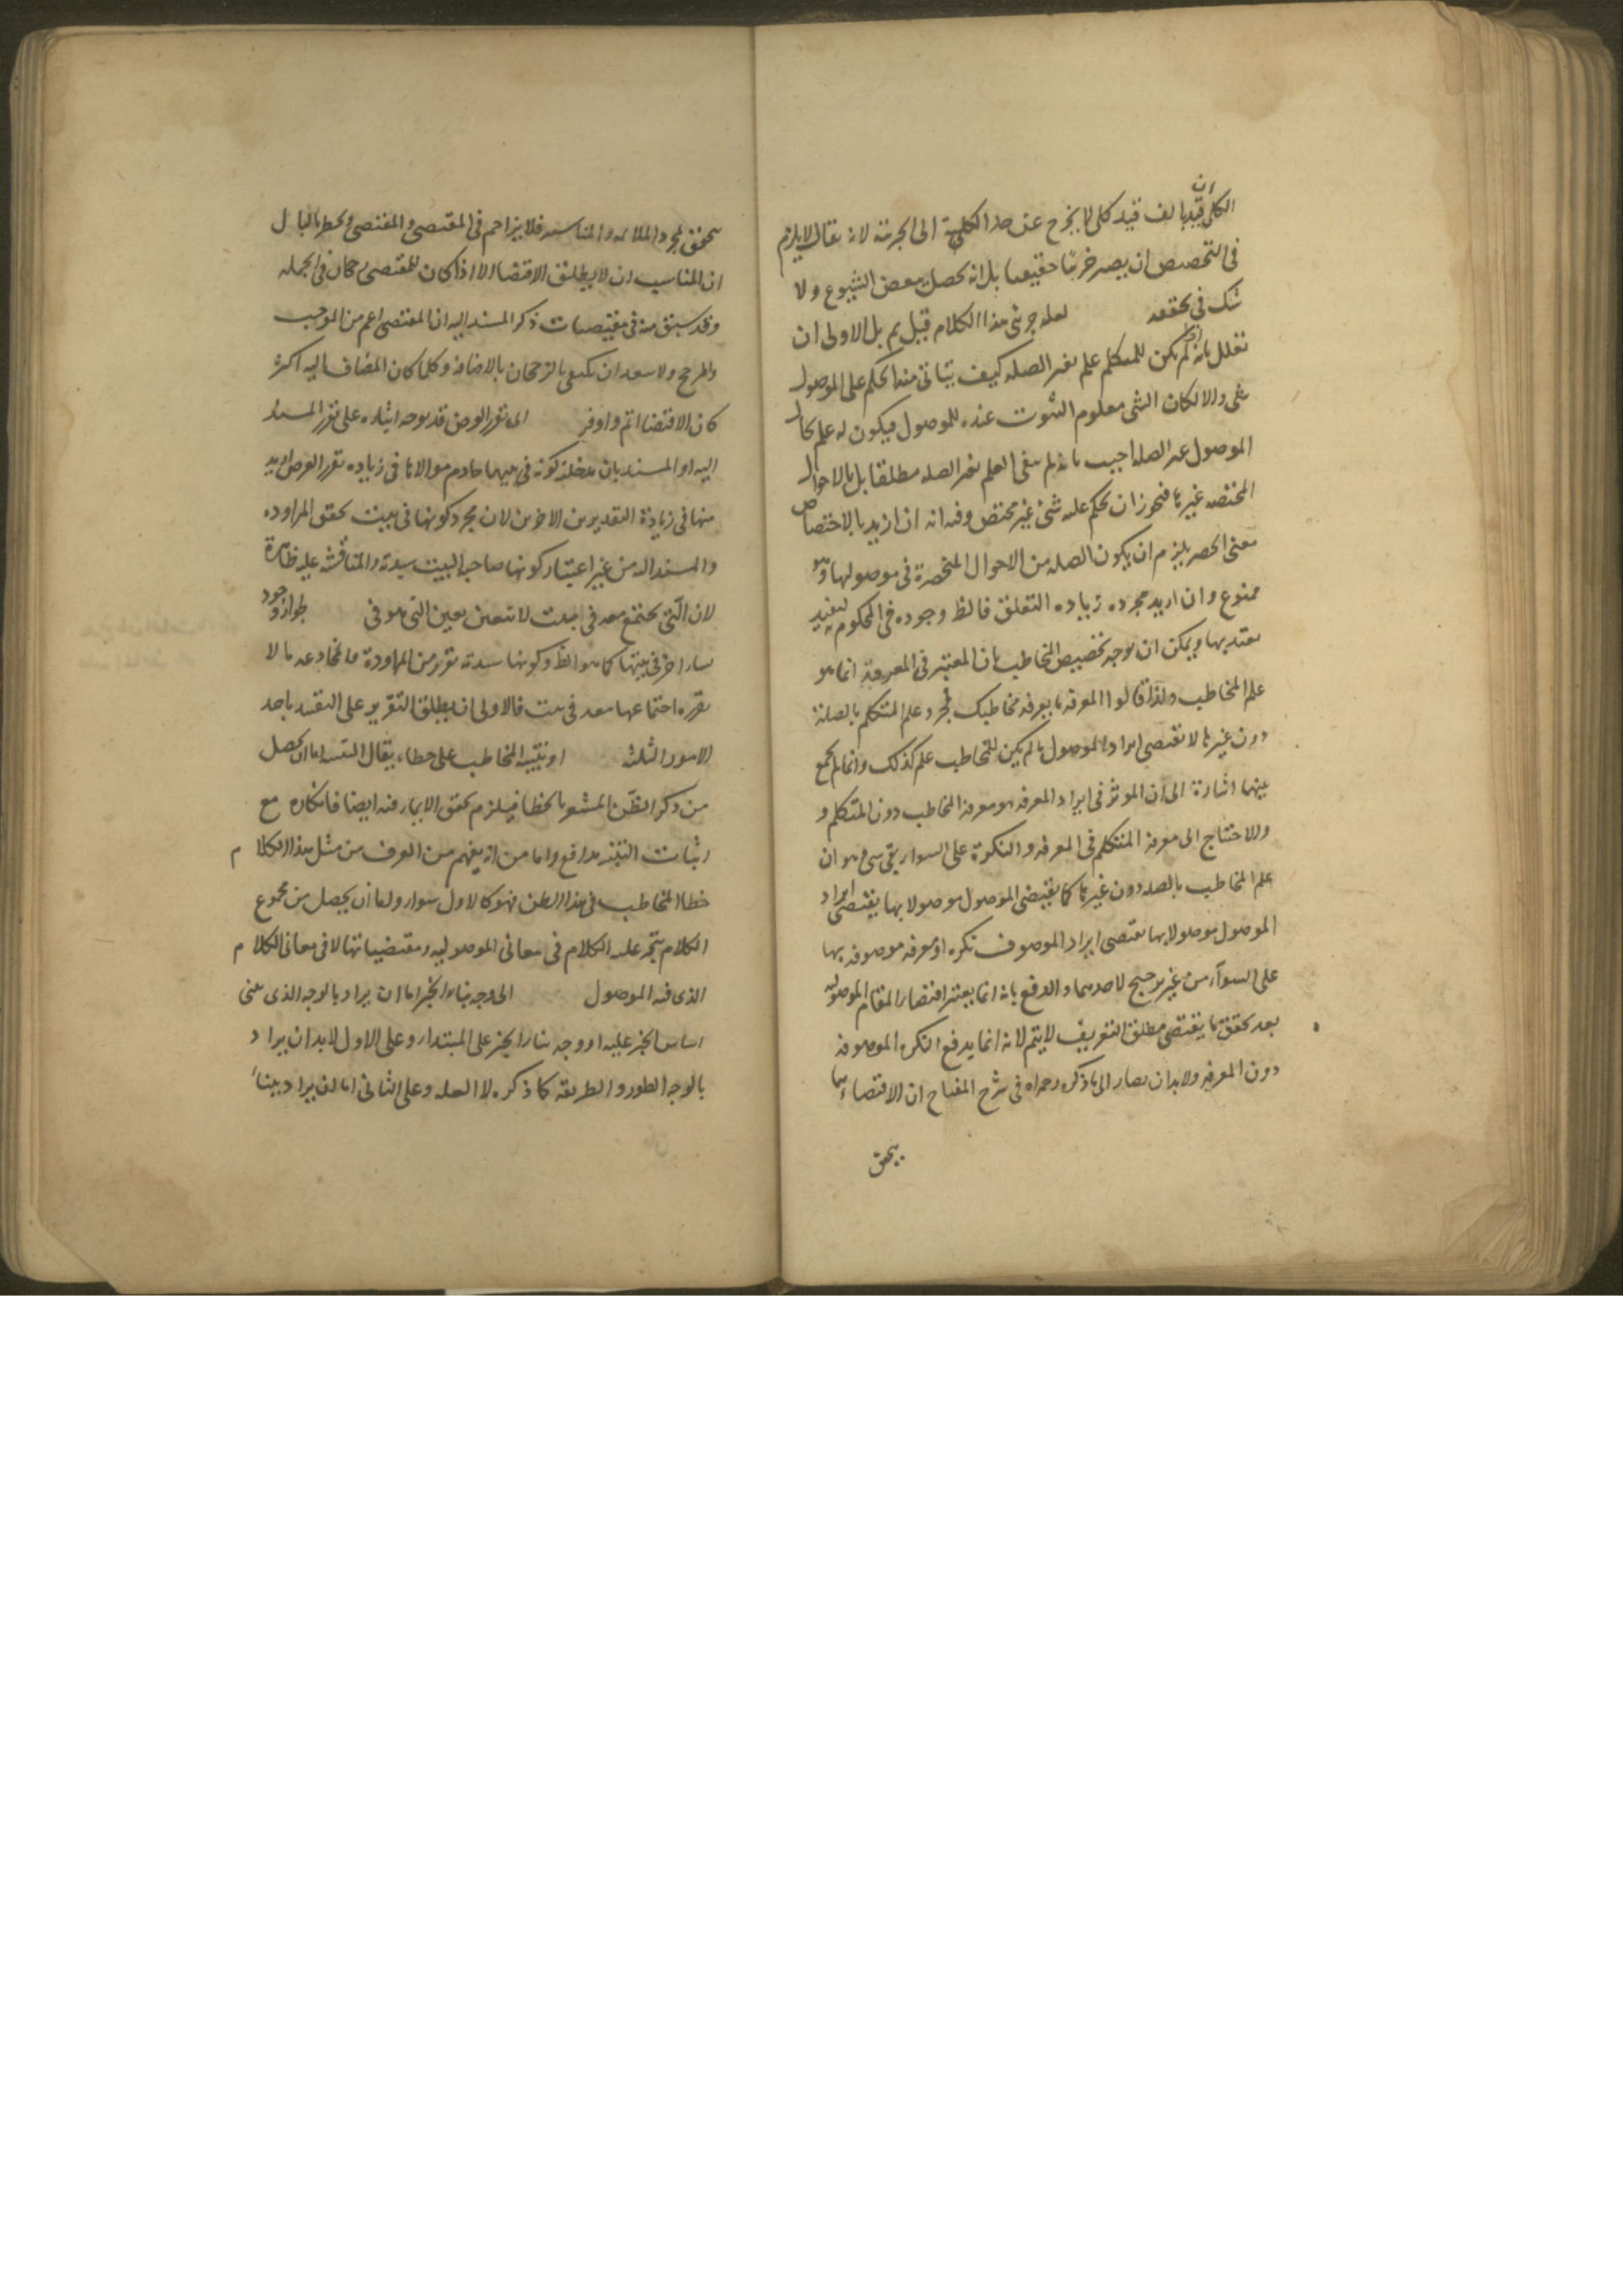 ان
الكلي قيد بالف قيد كلي لا يخرج عن حد الكلية الى الجزئية لانه يقال لا يلزم
في التخصيص ان يصير جزئيا حقيقيا بل انه يحصل بعض الشيوع ولا
شك في تحققه لعله جرى هذا الكلام قبل بل الاولى ان
تعلل بانه اذا لم يكن للمتكلم علم بغير الصلة كيف يتاتى منه الحكم على الموصول
بشي والا لكان الشي معلوم الثبوت عنده للموصول فيكون له علم بحال
الموصول غير الصلة اجيب بانه لم ينفى العلم بغير الصلة مطلقا بل بالاحوال
المختصة غيرها فيجوز ان يحكم عليه بشئ غير مختص وفيه انه ان اريد بالاختصاص
معنى الحصر يلزم ان يكون الصلة من الاحوال المنحصرة في موصولها وهو
ممنوع وان اريد مجرد زيادة التعلق فالظ وجوده في المحكوم به ليفيد
معتد بها ويمكن ان يوجه تخصيص المخاطب بان المعتبر في المعرفة انما هو
علم المخاطب ولذا قالوا المعرفة ما يعرفه مخاطبك فمجرد علم المتكلم بالصلة
دون غيرها لا يقتضى ايراد الموصول ما لم يكن للمخاطب علم كذلك وانما لم يجمع
بينهما اشارة الى ان الموثر في ايراد المعرفة هو معرفة المخاطب دون المتكلم و
والاحتياج الى معرفة المتكلم في المعرفة والنكرة على السواء بقي شي وهو ان
علم المخاطب بالصلة دون غيرها كما يقتضى الموصول موصولا بها يقتضى ايراد
الموصول موصولا بها يقتضى ايراد الموصوف نكرة او معرفة موصوفة بها
على السواء من غير ترجيح لاحدهما والدفع بانه انما يعتبر اقتضاء المقام الموصولية
بعد تحقق ما يقتضى مطلق التعريف لا يتم لانه انما يدفع النكرة الموصوفة
دون المعرفة ولا بد ان يصار الى ما ذكره رحمه الله في شرح المفتاح ان الاقتضاء انما
يتحقق
يتحقق بمجرد الملائمة والمناسبة فلا يزاحم في المقتضى والمقتضى ويخطر بالبال
ان المناسب ان لا يطلق الاقتضا الا اذا كان للمقتضى رجحان في الجملة
وقد سبق منه في مقتضيات ذكر المسند اليه ان المقتضى اعم من الموجب
والمرجح ولا يبعد ان يكتفى بالرجحان بالاضافة وكلما كان المضاف اليه اكثر
كان الاقتضا اتم واوفر اى تقرر الغرض قد يوجه ايثاره على تقرر المسند
اليه او المسند بان مدخلية كونه في بيتها خادم مولاتها في زيادة تقرر الغرض ازيد
منها في زيادة التقديرين الاخرين لان مجرد كونها في بيت يحقق المراودة
والمسند اليه من غير اعتبار كونها صاحبة البيت سيدة والمناقشة عليه ظاهرة
لان التي يجتمع معه في بيت لا تتعين بعين التي هو في بيتها لجواز وجود
نساء اخر في بيتها كما هو الظ وكونها سيدة يقرر من المراودة والمخادعة ما لا
يقرره اجتماعها معه في بيت فالاولى ان يطلق التقرير على التقييد باحد
الامور الثلثة او تنبيه المخاطب على خطاء يقال التنبيه اما ان يحصل
من ذكر الظن المشعر بالخطا فيلزم تحقق الايماء فيه ايضا فانكاره مع
اثبات التنبيه مدافع واما من انه يفهم من العرف من مثل هذا الكلام
خطا المخاطب في هذا الظن فهو كالاول سواء ولما ان يحصل من مجموع
الكلام يتجه عليه الكلام في معاني الموصولية ومقتضياتها لا في معاني الكلام
الذي فيه الموصول الى وجه بناء الخبر اما ان يراد بالوجه الذي يبنى
اساس الخبر عليه او وجه بناء الخبر على المبتدا وعلى الاول لا بد ان يراد
بالوجه الطور والطريقة كما ذكره لا العلة وعلى الثاني اما ان يراد ببناء